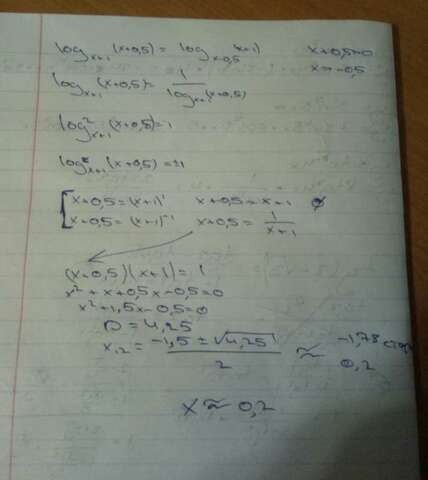 log_{x+1} (x+0,5) = log_{x+0,5} (x+1) x+0,5>0
x>-0,5
log_{x+1} (x+0,5) = 1/log_{x+1} (x+0,5)
log²_{x+1} (x+0,5) = 1
log_{x+1} (x+0,5) = ±1
[ x+0,5 = (x+1)¹ x+0,5 = x+1 ∅
x+0,5 = (x+1)⁻¹ x+0,5 = 1/(x+1)
(x+0,5)(x+1) = 1
x²+x+0,5x-0,5=0
x²+1,5x-0,5=0
D=4,25
x₁,₂ = (-1,5 ± √4,25)/2 ≈ -1,78
0,2
x ≈ 0,2